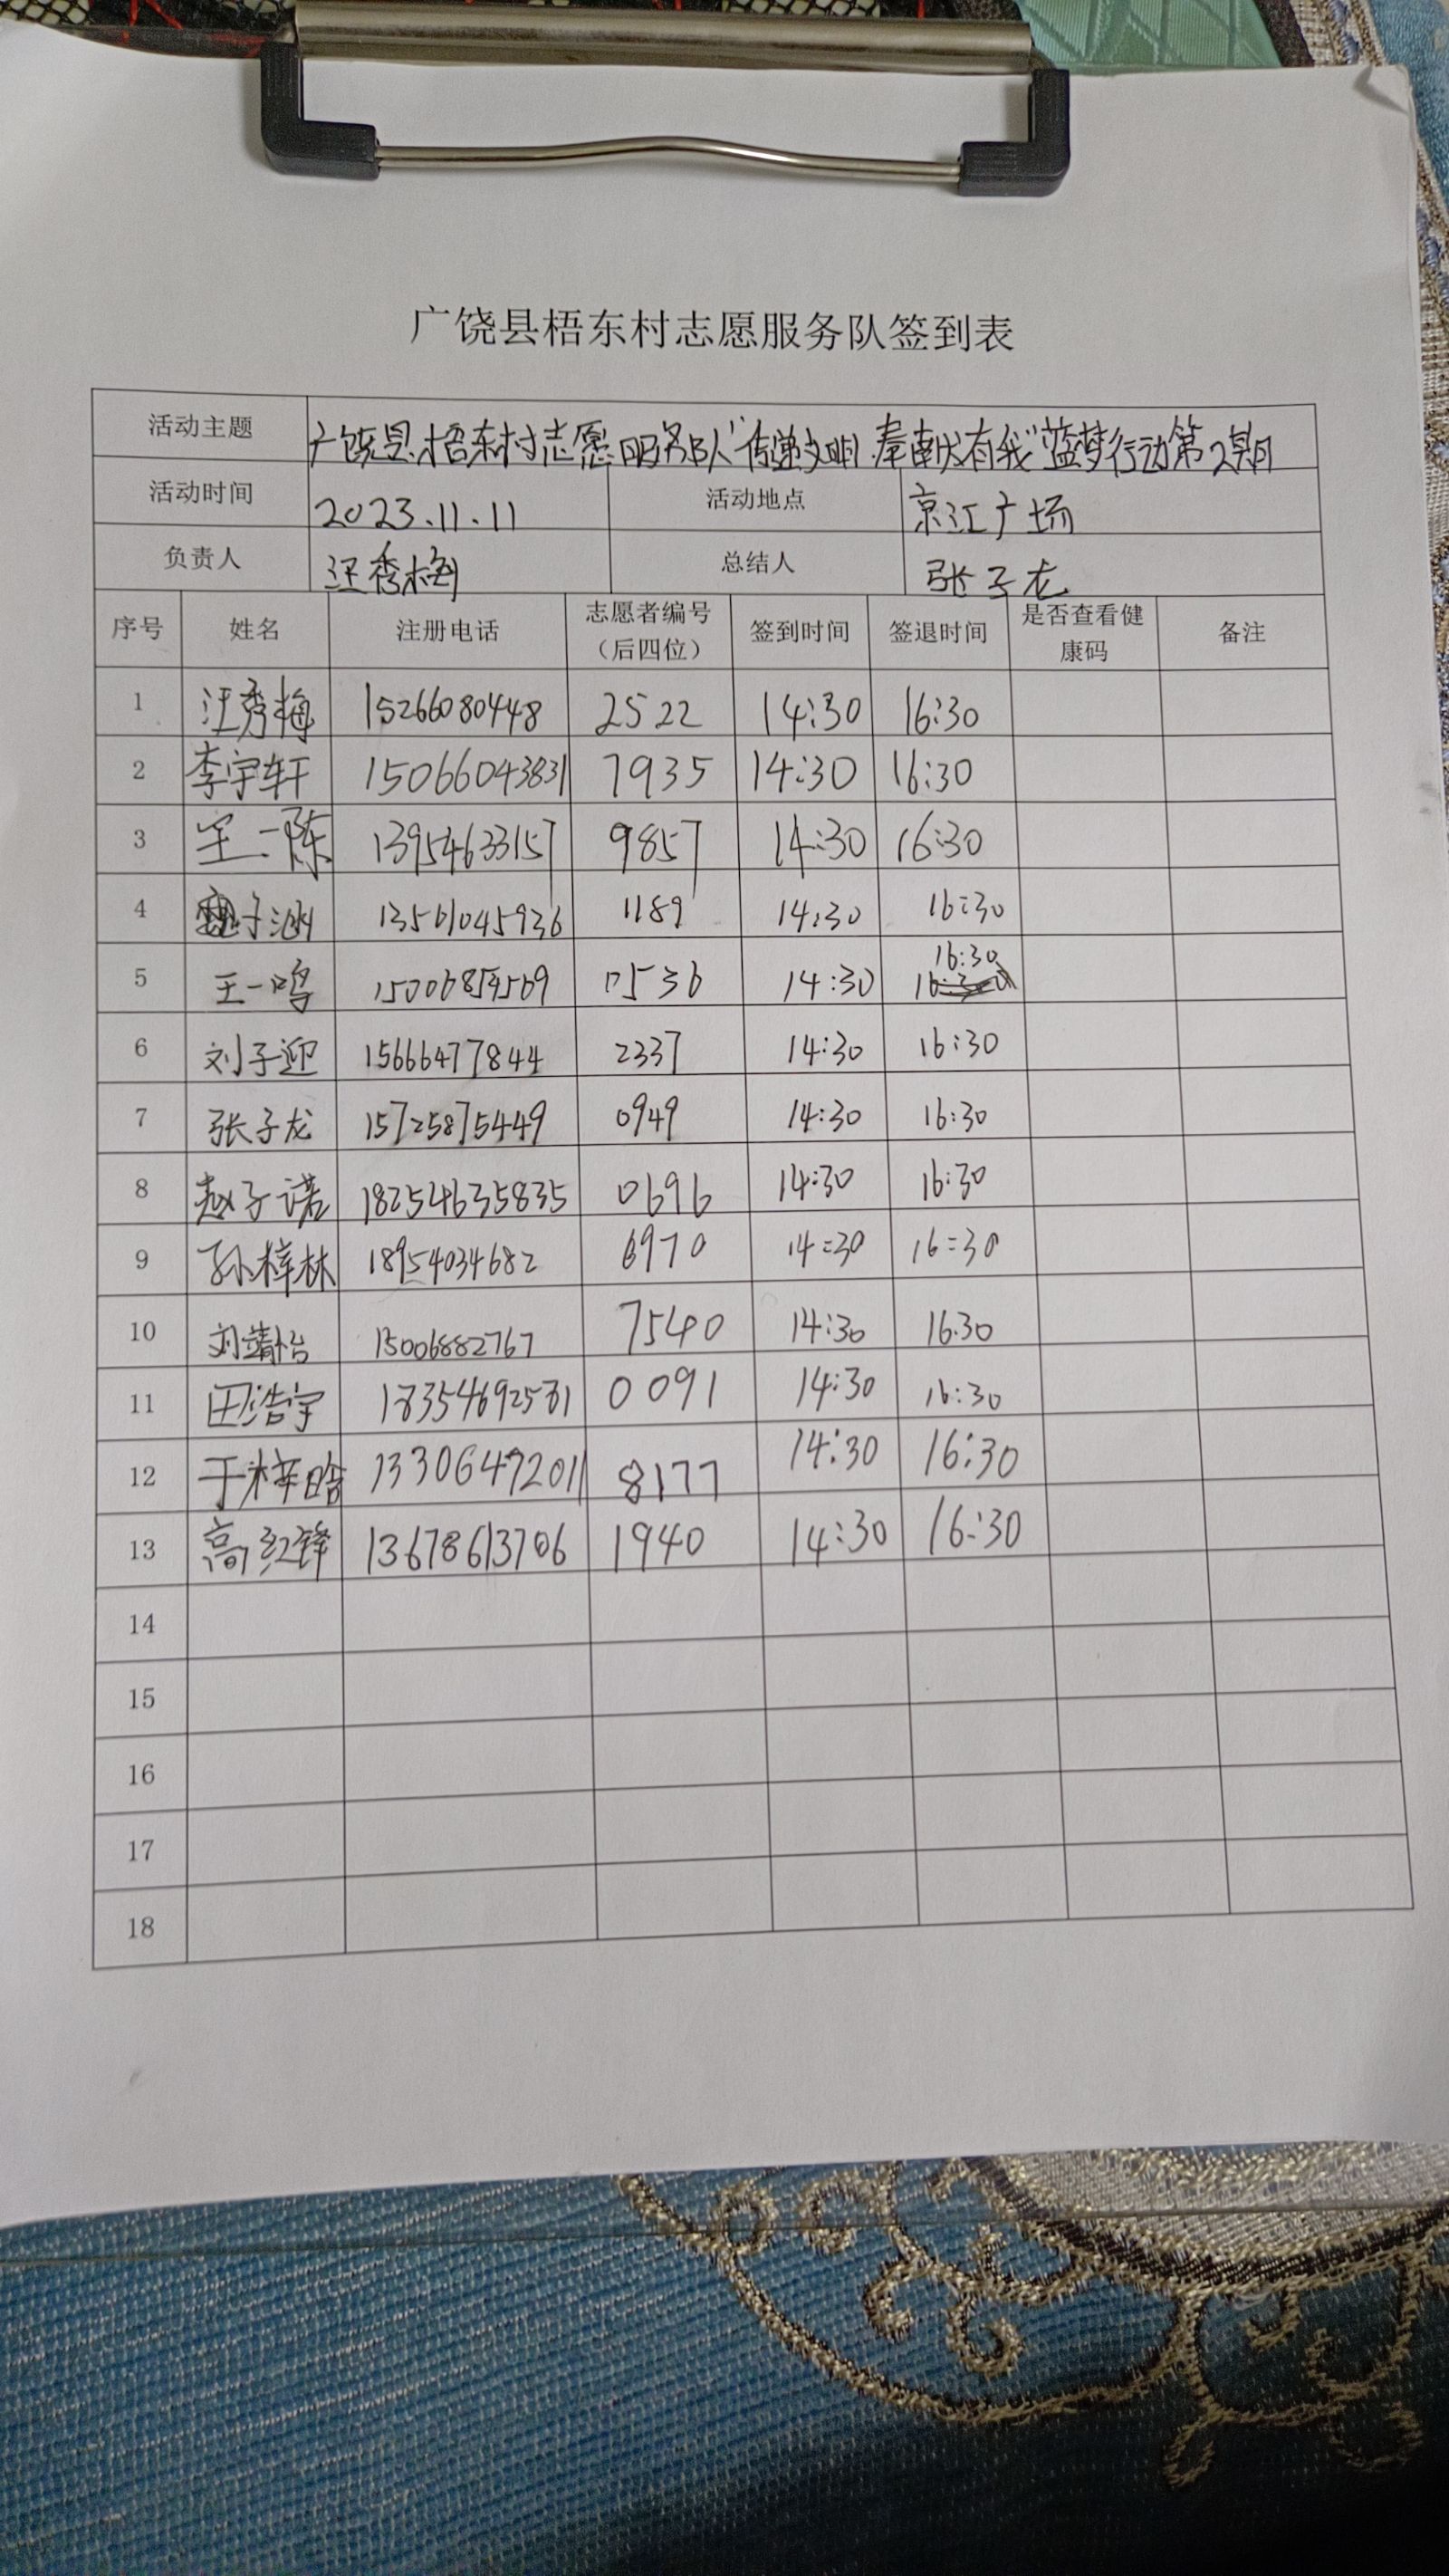 广饶县梧东村志愿服务队签到表
活动主题 广饶县梧东村志愿服务队“传递文明,奉献有我”蓝梦行动第2期
活动时间 2023.11.11 活动地点 京江广场
负责人 汪秀梅 总结人 张子龙
序号 姓名 注册电话 志愿者编号（后四位） 签到时间 签退时间 是否查看健康码 备注
1 汪秀梅 15266080448 2522 14:30 16:30
2 李宇轩 15066043831 7935 14:30 16:30
3 13954633157 9857 14:30 16:30
4 13561045936 1189 14:30 16:30
5 王一鸣 0536 14:30 16:30
6 刘子迎 15666477844 2337 14:30 16:30
7 张子龙 15725875449 0949 14:30 16:30
8 赵子诺 18254635835 0696 14:30 16:30
9 孙梓林 18954034682 6970 14:30 16:30
10 刘靖怡 15006882767 7540 14:30 16:30
11 田浩宇 0091 14:30 16:30
12 于梓晗 13306472011 8177 14:30 16:30
13 高红锋 13678613706 1940 14:30 16:30
14
15
16
17
18